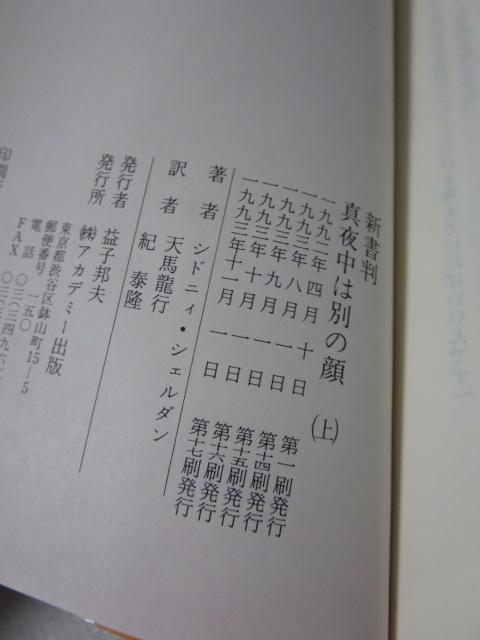 新書判
真夜中は別の顔 (上)
一九九二年 四月 十日 第一刷発行
一九九三年 八月 一日 第十四刷発行
一九九三年 九月 一日 第十五刷発行
一九九三年 十月 一日 第十六刷発行
一九九三年十一月 一日 第十七刷発行
著者 シドニィ・シェルダン
訳者 天馬龍行
紀 泰隆
発行者 益子邦夫
発行所 ㈱アカデミー出版
東京都渋谷区鉢山町15-5
郵便番号 一五〇
電話 〇三(三四九六)
FAX 〇三(三四九六)
印刷所